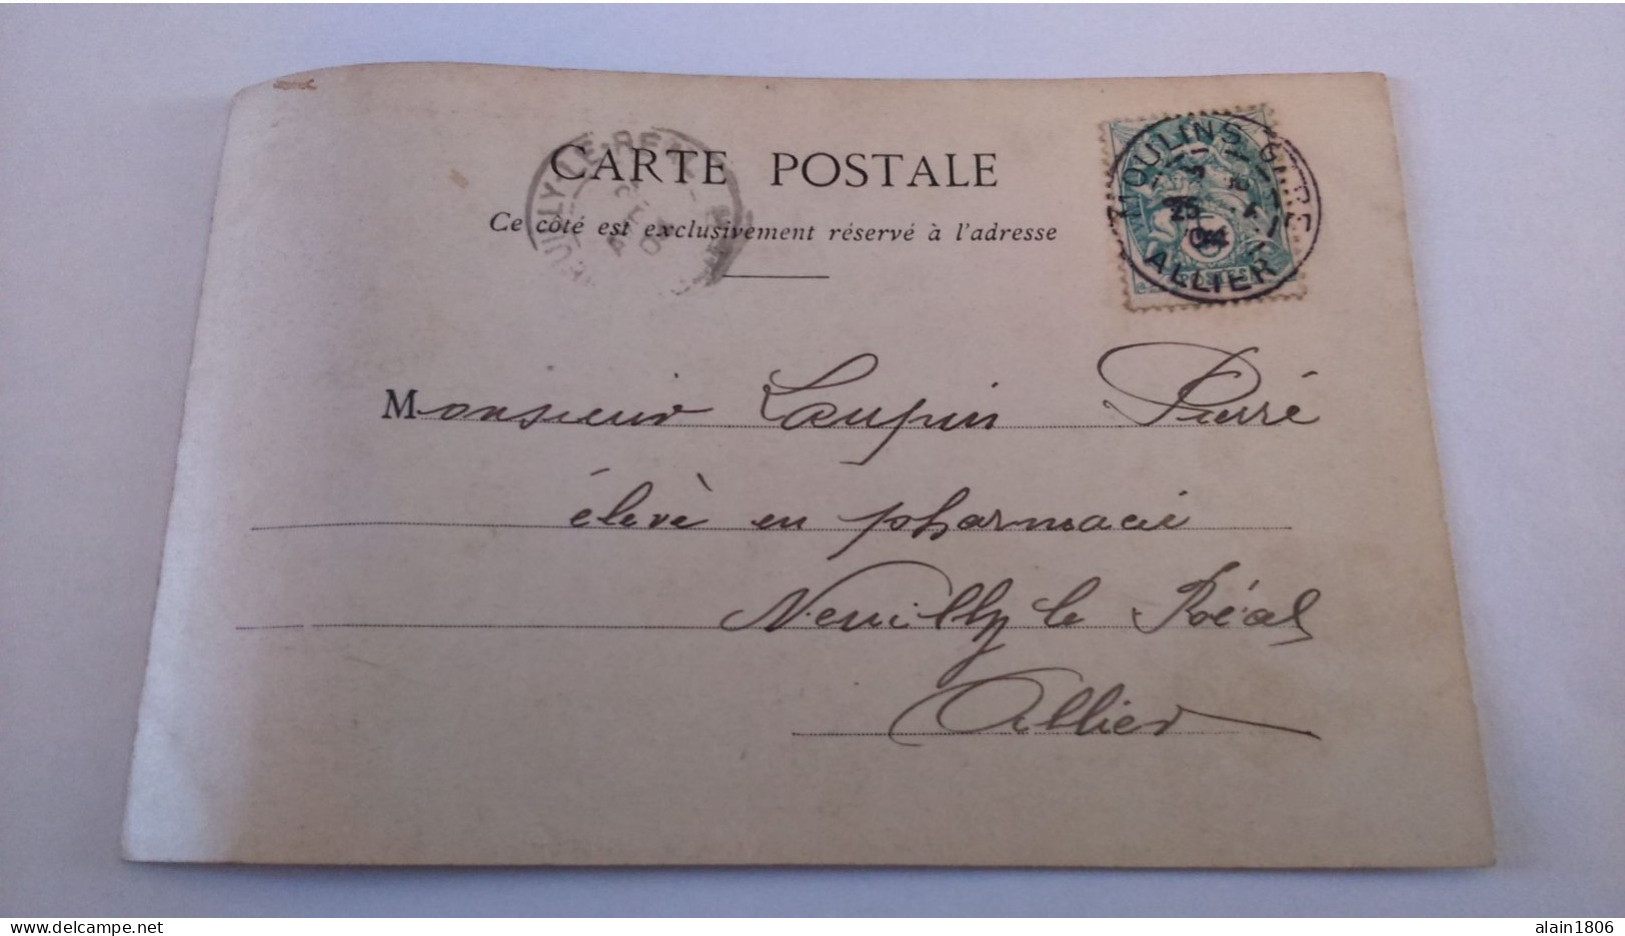 CARTE POSTALE
Ce côté est exclusivement réservé à l'adresse
MOULINS-GARE
25 -4
04
ALLIER
Monsieur Laupin Pierre
élève en pharmacie
Neuilly le Réal
Allier
alain1806